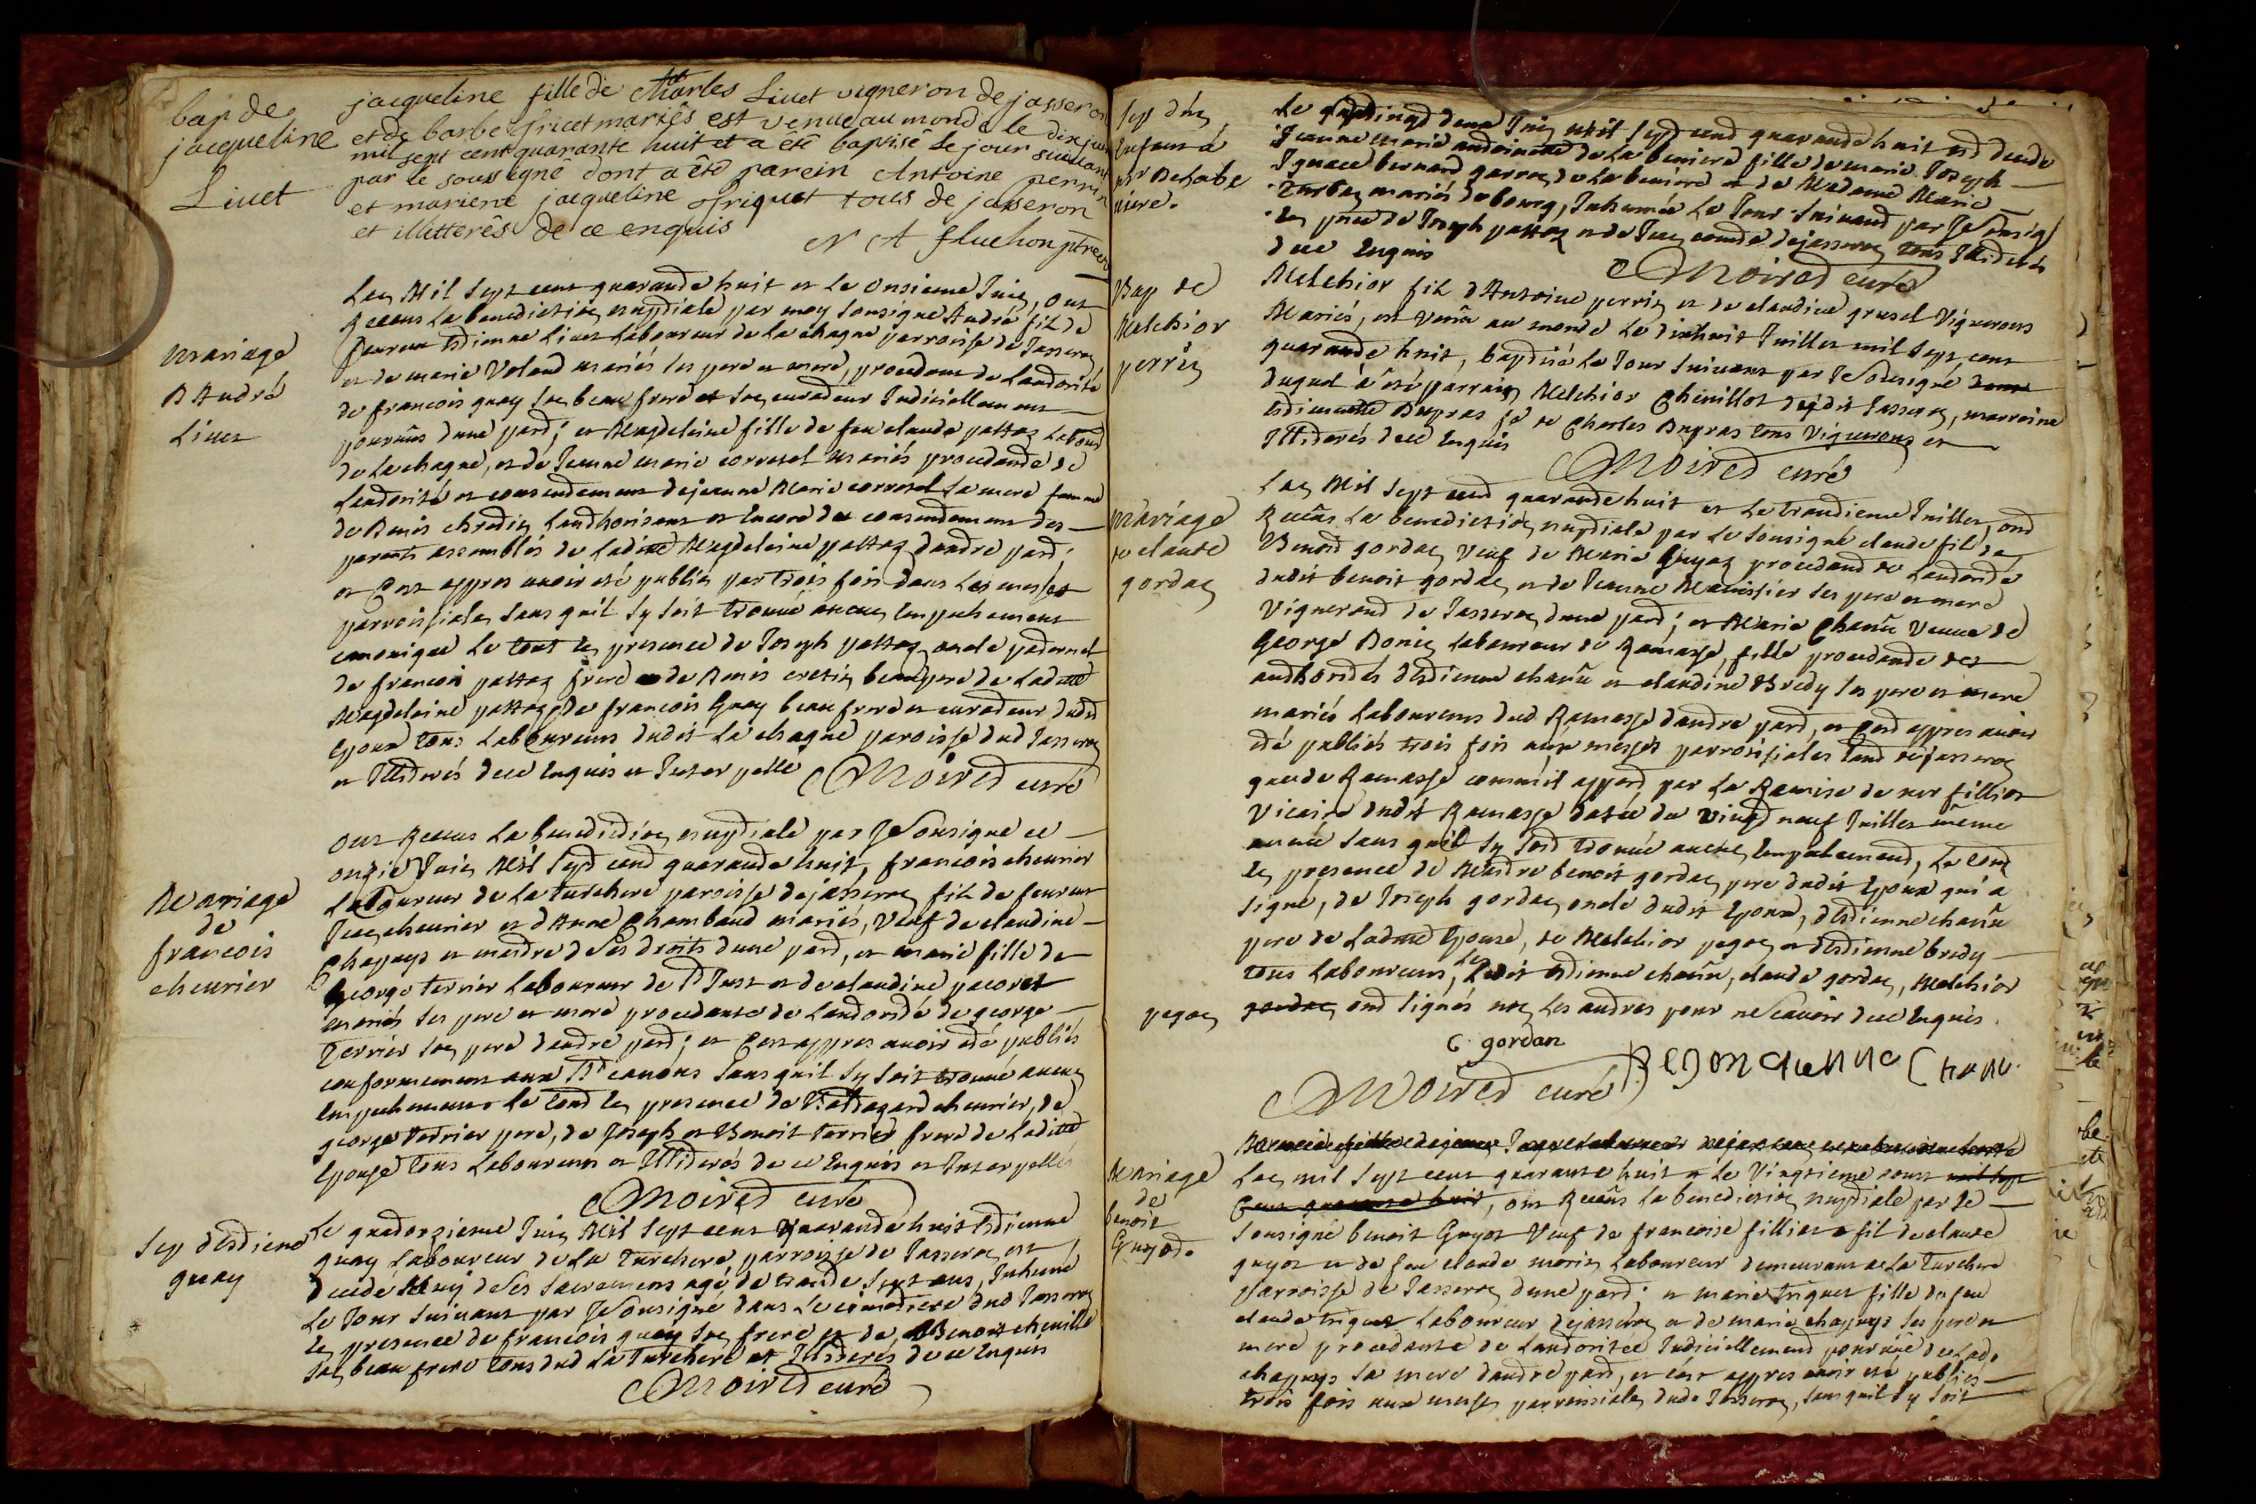 bap de
jacqueline
Livet
jacqueline fille de Charles Livet vigneron de jasseron
et de barbe fricet mariês est venue au monde le dix juin
mil sept cent quarante huit et a êtê baptisê le jour suivant
par le soussignê dont a êtê parein Antoine perrin
et mariene jacqueline friquet tous de jasseron
et illitterês de ce enquis
N A fluchon ptre
mariage
D'André
Livet
Lan Mil Sept cent quarante huit et Le onsieme Juin, ont
Receus La benediction nuptiale par moy Sousigné André fil de
feu Estienne Livet Laboureur de La chagne parroisse de Jasseron
et de marie Voland mariés ses pere et mere, procedant de Lautorité
de francois guay Son beau frere et Son curateur Judiciellement
pourvus dune part; et Magdeleine fille de feu claude pattaz Labour
de La chagne, et de Jeanne marie corretel mariés procedante de
Lautorité et consentement de jeanne Marie corretel Sa mere femme
de Denis chretin Lauthorisant et Encore du consentement des
parents assemblés de Ladite Magdeleine pattaz dautre part;
et Cest appres avoir eté publiés par trois fois dans Les messes
parroissiales Sans quil Sy Soit trouvé aucun Empechement
canonique Le tout En presence de Joseph pattaz oncle paternel
de francois pattaz frere de Denis cretin beaupere de Ladite
Magdeleine pattaz, de francois Guay beau frere et curateur dudit
Epoux tous Laboureurs dudit La chagne paroisse dud Jasseron
et Illiterés de ce Enquis et Interpelle Moiret curé
Mariage
de
francois
cheurier
Ont Receus La benediction nuptiale par Je Sousigné ce
onzie Juin Mil Sept cent quarante huit, francois cheurier
Laboureur de La turchere paroisse de jasseron fil de feu
Jean cheurier et d'Anne Chambaud mariés, Veuf de claudine
Chapuys et maitre de Ses droits dune part, et marie fille de
George terrier Laboureur de St Just et de claudine pacoret
mariés Ses pere et mere procedante de Lautorité de george
Terrier Son pere dautre part; et Cest appres avoir eté publiés
conformement aux Sts canons Sans quil Sy Soit trouvé aucun
Empechement Le tout En presence de cheurier, de
george terrier pere, de Joseph et Benoit terrier frere de Ladite
Epouse tous Laboureurs et Illiterés de ce Enquis et Interpellés
Moiret curé
Sep d'Estiene
guay
Le quatorzieme Juin Mil Sept cent quarante huit Estienne
guay Laboureur de La Turchere parroisse de Jasseron est
decedé Muny de Ses Sacremens agé de trente Sept ans, Inhumé
Le Jour Suivant par Je Sousigné dans Le cimetiere dud Jasseron
En presence de francois guay Son frere et de Benoit chenille
Son beau frere tous dud La Turchere et Illiterés de ce Enquis
Moiret curé
Sep d'un
Enfant à
Mr Delabe
niere.
Le vingt deux Juin mil Sept cent quarante huit est decede
Jeanne marie antoinette de La beniere fille de marie Joseph
Ignace bernard garron de La beniere et de Madame Marie
mariés de bourg, Inhumée Le Jour Suivant par Je Sousig
En pnce de Joseph pattaz et de Jean conde de jasseron tous Illiterés
de ce Enquis
Moiret curé
Bap de
Melchior
perrin
Melchior fil d'Antoine perrin et de claudine grusel Vignerons
Mariés, est Venu au monde Le dixhuit Juillet mil Sept cent
quarante huit, baptisé Le Jour Suivant par Je Sousigné
duquel à eté parrain Melchior Chenillot dudit Jasseron, marraine
Estiennette Dupras fe de Charles Dupras tous Vignerons et
Illiterés de ce Enquis
Moiret curé
Mariage
de claude
gordan
Lan Mil Sept cent quarante huit et Le trentieme Juillet, ont
Receus La benediction nuptiale par Le Sousigné claude fil de
Benoit gordan, Veuf de Marie Guyaz procedant de Lautorité
dudit benoit gordan et de Jeanne Manissier Ses pere et mere
Vigneront de Jasseron dune part; et Marie Chanu Veuve de
George Bonin Laboureur de Ramasse, fille procedante des
authorités d'Estienne chanu et claudine Bredy Ses pere et mere
mariés Laboureurs dud Ramasse dautre part, et cest appres avoir
eté publiés trois fois aux messes parroissiales tant de jasseron
que de Ramasse comme il appert par La Remise de mr fillion
Vicaire dudit Ramasse datée du Vingt neuf Juillet même
année Sans quil Sy Soit trouvé aucun Empechement, Le tout
En presence de Maitre benoit gordan pere dudit Epoux qui a
Signé, de Joseph gordan oncle dudit Epoux, d'Estienne chanu
pere de Ladite Epouse, de Melchior pegon et d'Estienne bredy
tous Laboureurs, Ledit Estienne chanu, claude gordan, Melchior
pegon gordan ont Signés non Les autres pour ne Scavoir de ce Enquis.
C gordan
Moiret curé
Mariage
de
benoit
Guyot.
Lan mil Sept cent quarante huit et Le Vingtieme aoust mil Sept
Cent quarante huit, ont Receus La benediction nuptiale par Le
Sousigné benoit Guyot Veuf de francoise fillier fil de claude
guyot et de feu claude morin Laboureur demeurant a La Turchere
Parroisse de Jasseron dune part; et marie triquet fille du feu
claude triquet Laboureur de jasseron et de marie chapuys Ses pere et
mere procedante de Lautoritée Judiciellement pourvüe de Lad.
chapuys Sa mere dautre part, et cest appres avoir eté publiés
trois fois aux messes parroissiales dud. Jasseron, Sans quil Sy Soit